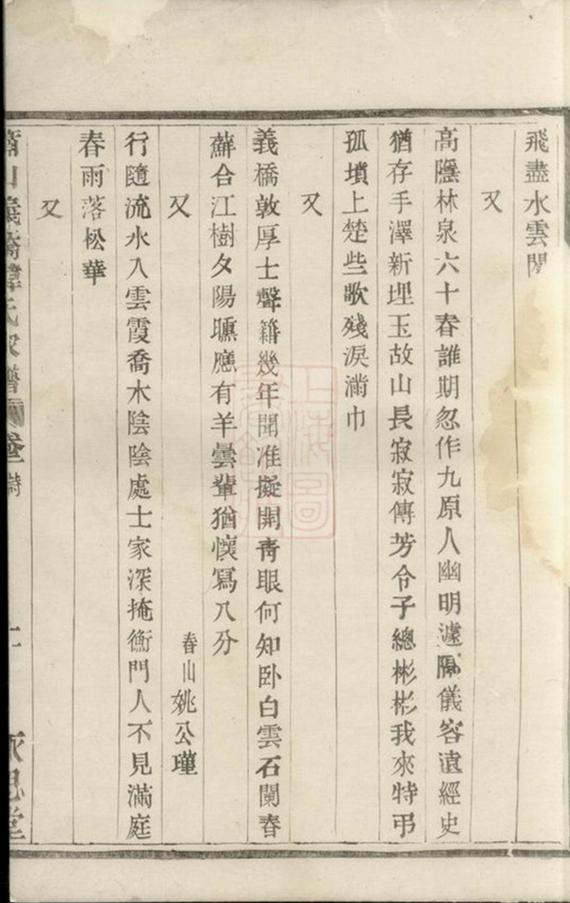 飛盡水雲閒
又
高隱林泉六十春誰期忽作九原人幽明遽隔儀容遠經史
猶存手澤新埋玉故山長寂寂傳芳令子總彬彬我來特弔
孤墳上楚些歌殘淚滿巾
又
義橋敦厚士聲籍幾年聞准擬開靑眼何知卧白雲石闌春
蘚合江樹夕陽曛應有羊曇輩猶懷寫八分
又 春山姚公瑾
行隨流水入雲霞喬木陰陰處士家深掩衡門人不見滿庭
春雨落松華
又
蕭山義橋韓氏家譜 卷 詩 十 永思堂
上海圖